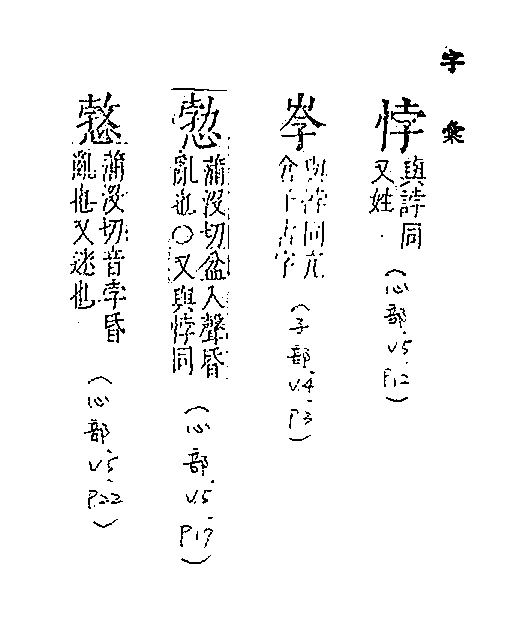 字彙
悖
與誖同
又姓
(心部.V.5.P.12)
㝿
與悖同
(子部.V.4.P.3)
㤄
蒲没切盆入聲昏
亂也○又與悖同
(心部.V.5.P.17)
蒲没切音孛昏
亂也又迷也
(心部.V.5.P.22)